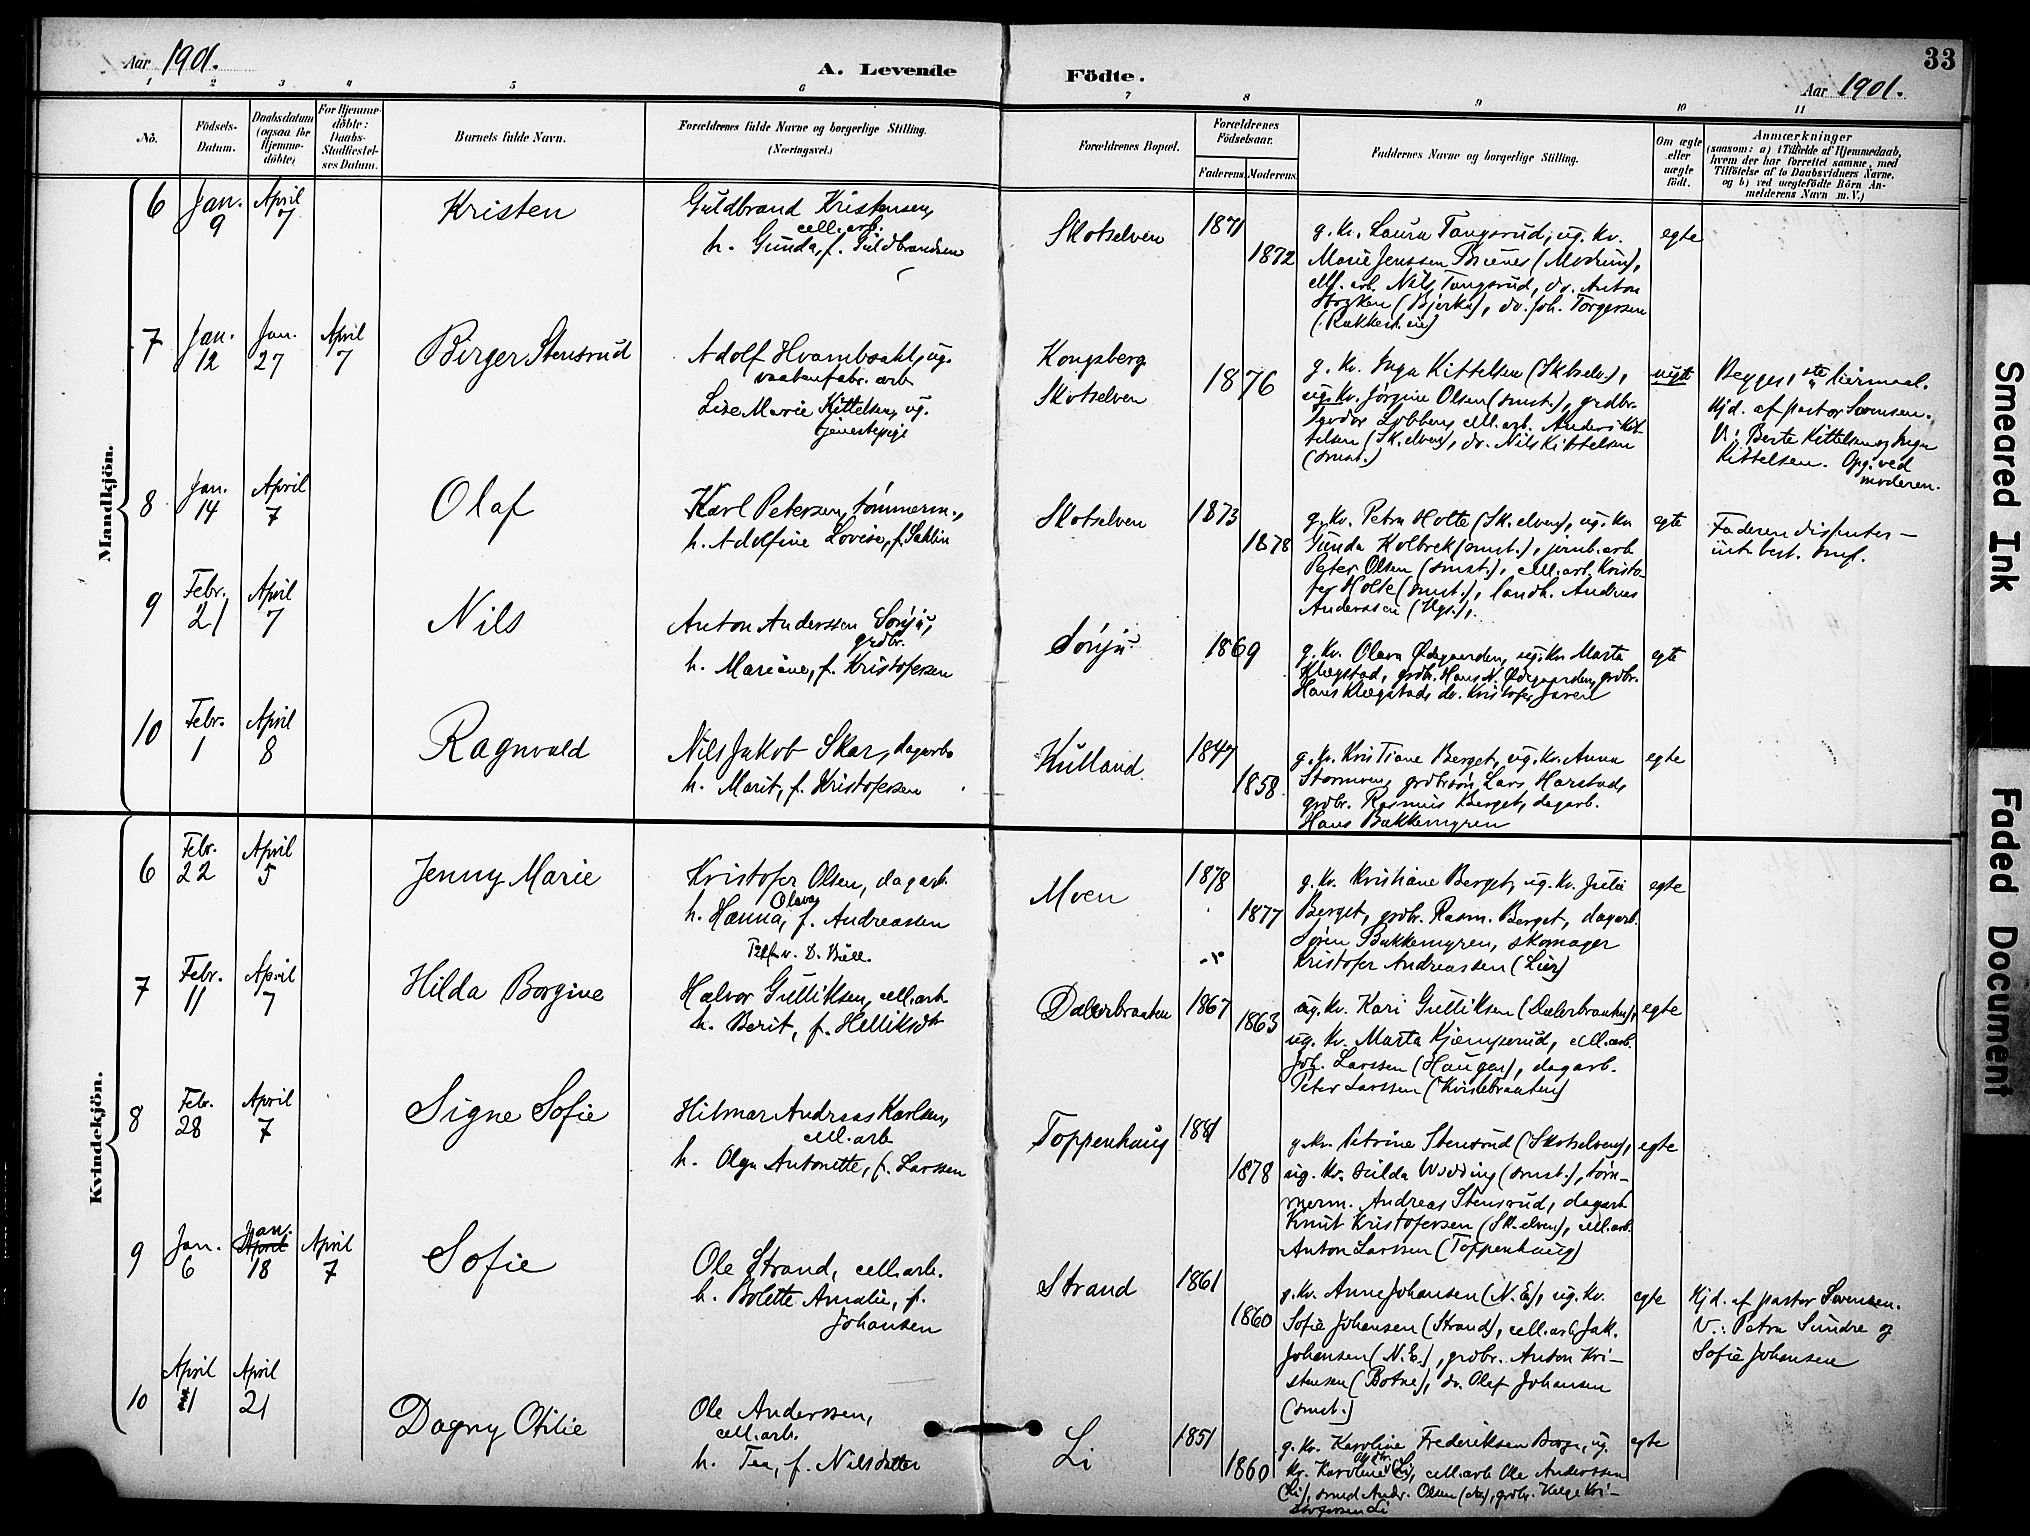 Aar 1901.
A. Levende Födte.
Aar 1901.
33
1 2 3 4 5 6 7 8 9 10 11
No.
Födsels-Datum.
Daabsdatum (ogsaa for Hjemme-döbte)
For Hjemme-döbte: Daabs-Stadfæstel-ses Datum.
Barnets fulde Navn.
Forældrenes fulde Navne og borgerlige Stilling. (Næringsvei.)
Forældrenes Bopæl.
Forældrenes Födselsaar.
Faderens. Moderens.
Faddernes Navne og borgerlige Stilling.
Om ægte eller uægte födt.
Anmærkninger
(saasom: a) i Tilfælde af Hjemmedaab,
hvem der har forrettet samme, med
Tilföielse af to Daabsvidners Navne,
og b) ved uægtefödte Börn An-
melderens Navn m. V.)
Mandkjön.
6 Jan. 9 April 7
Kristen
Guldbrand Kristensen,
cell.arb.
h. Gunda, f. Guldbrandsen
Skotselven
1871
1872
g. kv. Laura Tangsrud, ug. kv.
Marie Jenssen (Modum),
cell. arb. Nils Tangsrud, do. Anton
do. Joh. Torgersen
egte
7 Jan. 12 Jan. 27 April 7
Birger Stensrud
Adolf Hvambsahl, ug.
vaabenfabr. arb.
Lise Marie Kittelsen, ug.
tjenestepige
Kongsberg
Skotselven
1876
g. kv. Inga Kittelsen (Sk.selv.),
ug. kv. Jörgine Olsen (smst.), grdbr.
cell.arb. Anders Kit-
telsen (Sk.elven), do. Nils Kittelsen
(smst.)
uegte
Begges 1ste leiermaal.
Hjd. af pastor Sørensen.
V: Berte Kittelsen og Inga
Kittelsen. Opg. ved
moderen.
8 Jan. 14 April 7
Olaf
Karl Petersen, tømmerm.,
h. Adolfine Lovise, f. Sahlin
Skotselven
1873
1878
g. kv. Petra Holte (Sk.elven), ug. kv.
Gunda Kolbrek (smst.), jernb.arb.
Peter Olsen (smst.), cell.arb. Kristo-
fer Holte (smst.), landh. Andreas
Anderssen
egte
Faderen dissenter –
9 Febr. 21 April 7
Nils
Anton Anderssen
grdbr.
h. Mariane, f. Kristofersen
1869
g. kv. Olava Ødegaarden, ug. kv. Marta
Klægstad, grdbr. Hans N. Ødegaarden, grdbr.
Hans Klægstad, do. Kristofer
egte
10 Febr. 1 April 8
Ragnvald
Nils Jakob Skar, dagarb.
h. Marit, f. Kristofersen
Kulland
1847
1858
g. kv. Kristiane Berget, ug. kv. Anna
grdbrsøn Lars Harstad,
grdbr. Rasmus Berget, dagarb.
Hans Bakkemyren
egte
Kvindekjön.
6 Febr. 22 April 5
Jenny Marie
Kristofer Olsen, dagarb.
Olava
h. Hanna, f. Andreassen
Moen
1878
1877
g. kv. Kristiane Berget, ug. kv. Julie
Berget, grdbr. Rasm. Berget, dagarb.
Søren Bakkemyren, skomager
Kristofer Andreassen (Lier)
egte
7 Febr. 11 April 7
Hilda Borgine
Halvor Gulliksen, cell.arb.
h. Berit, f. Helliksdtr.
Dalerbraaten
1867
1863
ug. kv. Kari Gulliksen (Dalerbraaten),
ug. kv. Marta Kjemperud, cell.arb.
Joh. Larssen (Haugen), dagarb.
Peter Larssen (Kvislebraaten)
egte
8 Febr. 28 April 7
Signe Sofie
Hilmar Andreas Karlsen,
cell.arb.
h. Olga Antonette, f. Larssen
Toppenhaug
1881
1878
g. kv. Petrine Stensrud (Skotselven),
ug. kv. Hilda Wedding (smst.), tøm-
merm. Andreas Stensrud, dagarb.
Knut Kristofersen (Sk.elven), cell.arb.
Anton Larssen (Toppenhaug)
egte
9 Jan. 6 April Jan. 18 April 7
Sofie
Ole Strand, cell.arb.
h. Bolette Amalie, f.
Johansen
Strand
1861
1860
g. kv. Anne Johansen (N.E.), ug. kv.
Sofie Johansen (Strand), cell.arb. Jak.
Johansen (N.E.), grdbr. Anton Kri-
stensen (Botne), do. Olaf Johansen
(smst.)
egte
Hjd. af pastor Sørensen.
V.: Petra Sundre og
Sofie Johansen
10 April 11 April 21
Dagny Otilie
Ole Anderssen,
cell.arb.
h. Tea, f. Nilsdatter
Li
1851
1860
g. kv. Karoline Frederiksen Borge, ug.
kv. Karoline (Li), cell.arb. Ole Anderssen
(Li), smed Andr. Olsen grdbr. Helge Kri-
stofersen Li
egte
Smeared Ink
Faded Document